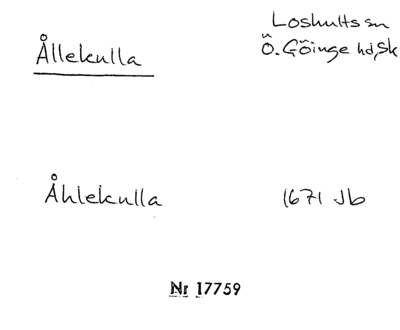 Loshults sn
Ållekulla
Ö. Göinge hd, Sk
Åhlekulla 1671 Jb
Nr 17759